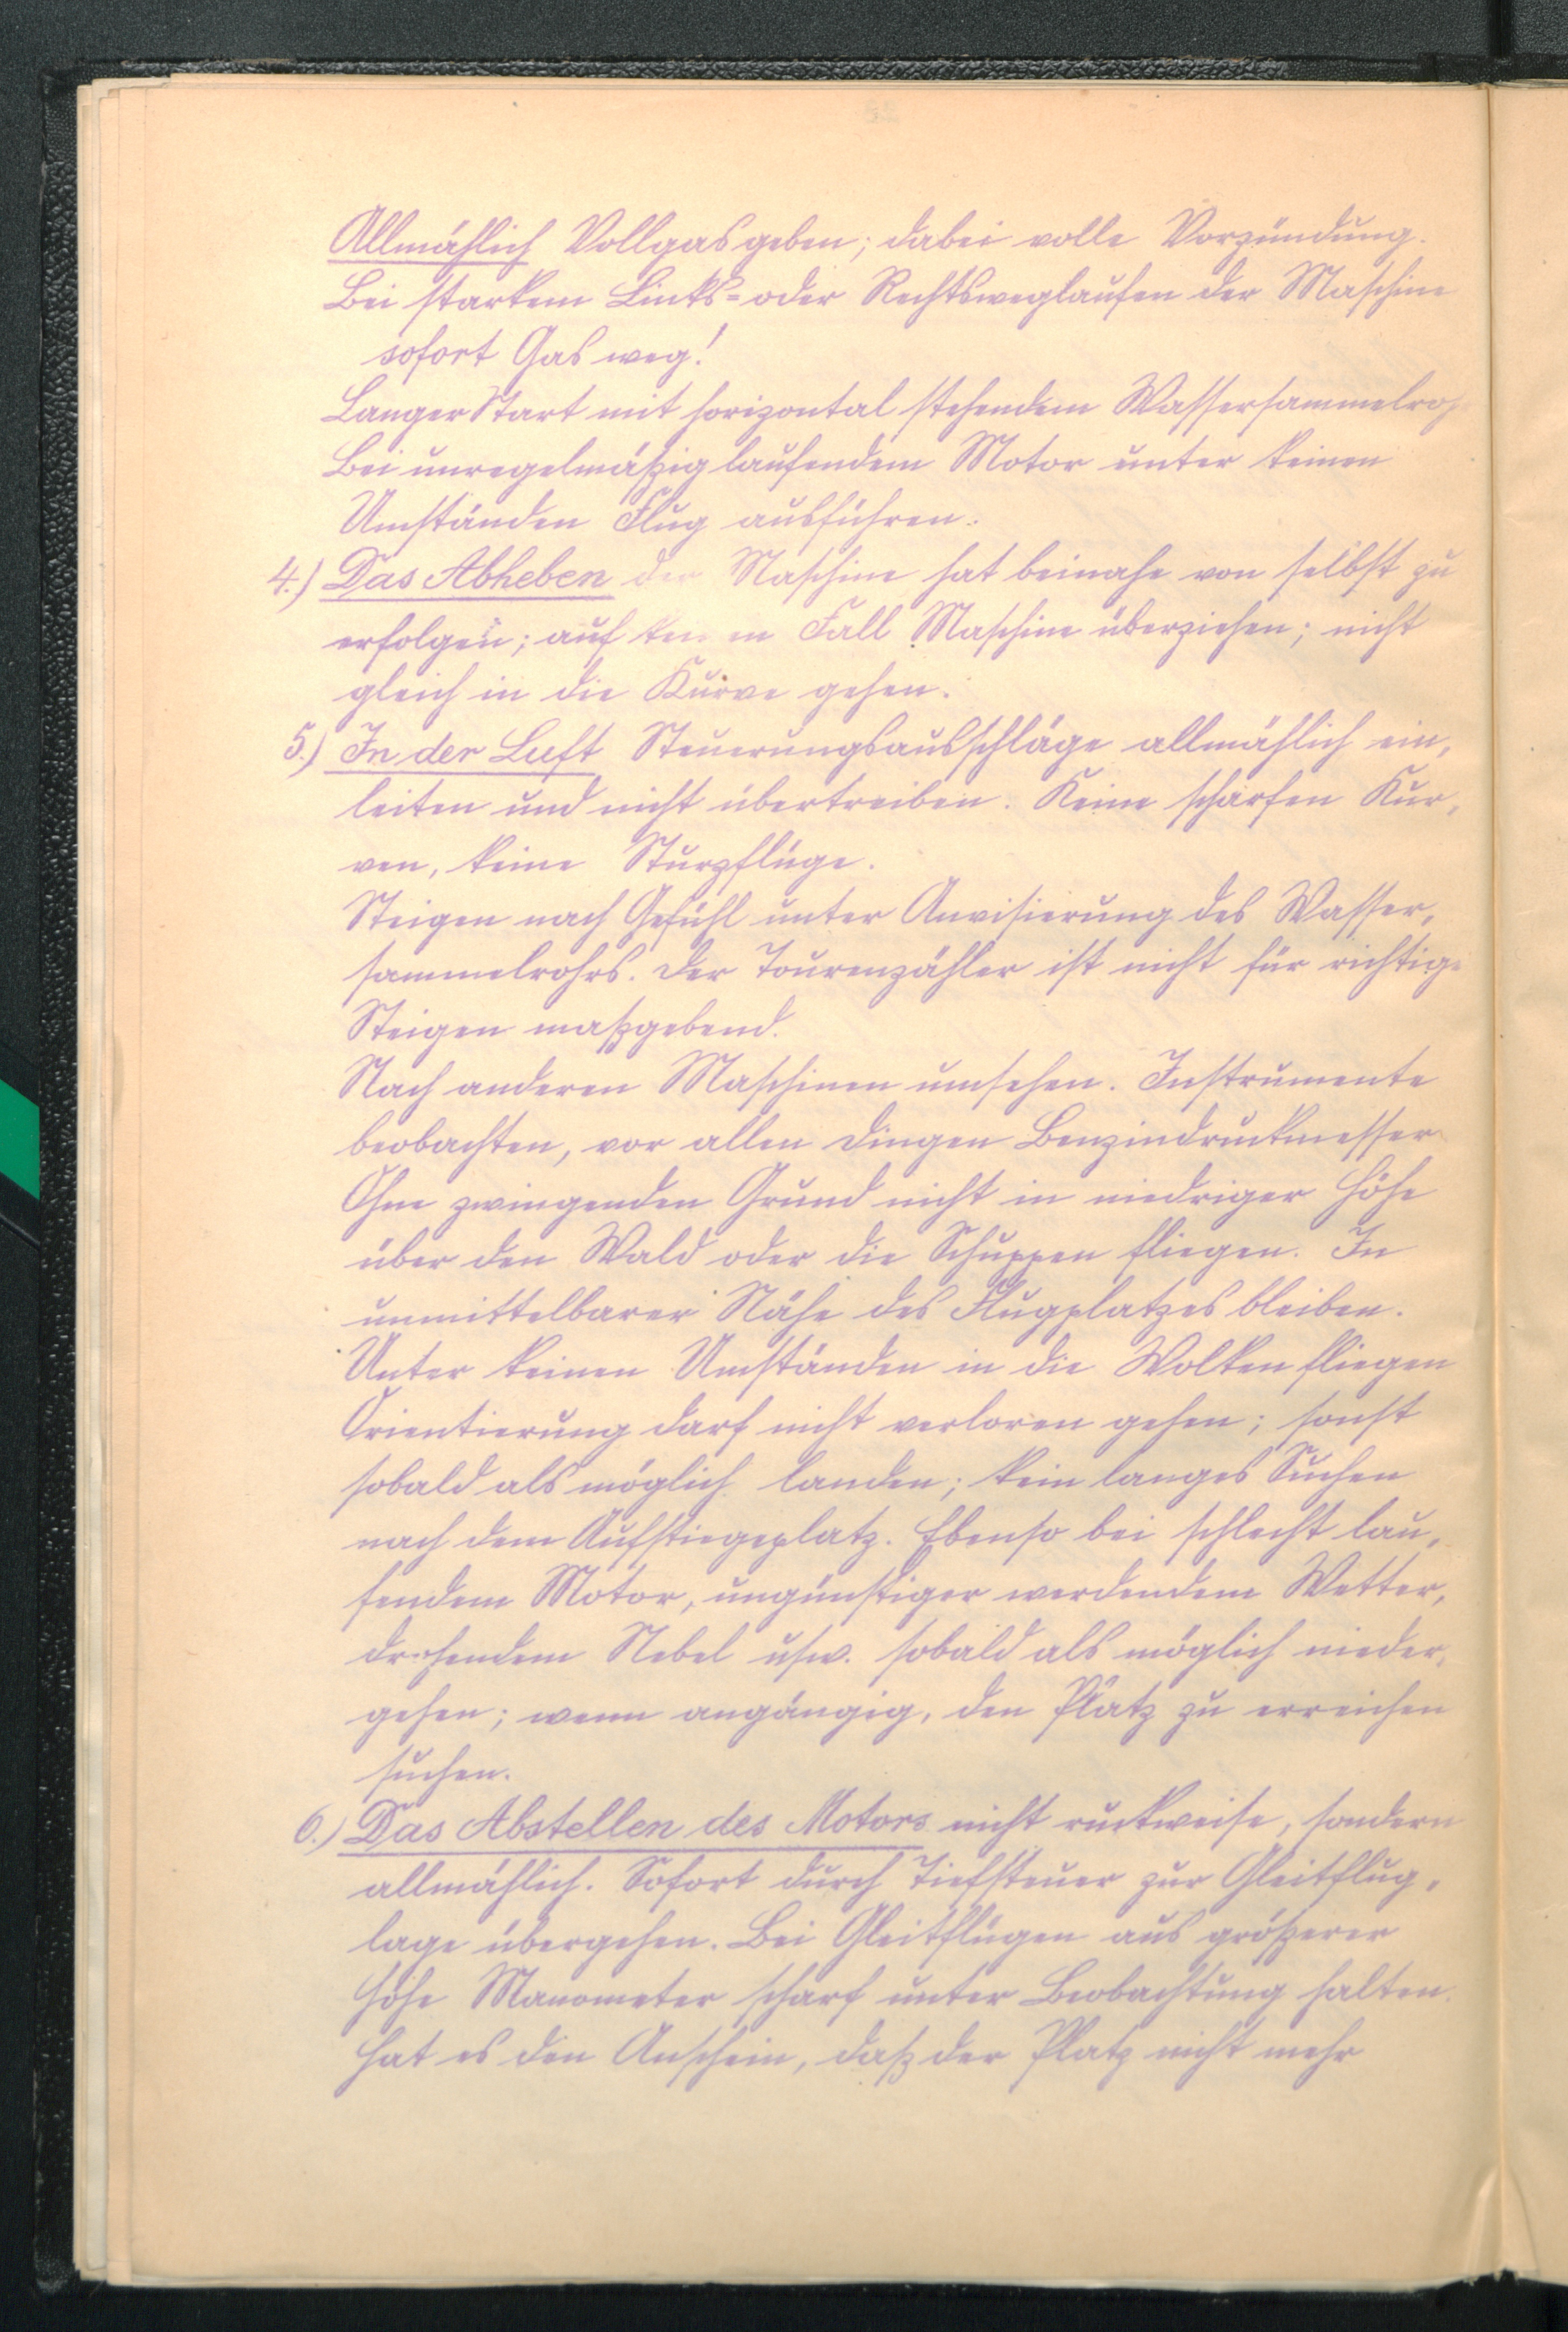 Allmählich Vollgas geben; dabei volle Vorzündung.
Bei starkem Links= oder Rechtsweglaufen der Maschine
sofort Gas weg!
Langer Start mit horizontal stehendem Wassersammelroh
Bei unregelmäßig laufendem Motor unter keinen
Umständen Flug ausführen.
4.) Das Abheben der Maschine hat beinahe von selbst zu
erfolgen; auf keinen Fall Maschine überziehen; nicht
gleich in die Kurve gehen.
5.) In der Luft Steuerungsausschläge allmählich ein,
leiten und nicht übertreiben. Keine scharfen Kur,
ven, keine Sturzflüge.
Steigen nach Gefühl unter Anvisierung des Wasser,
sammelrohrs. Der Tourenzähler ist nicht für richtige
Steigen maßgebend.
Nach anderen Maschinen umsehen. Instrumente
beobachten, vor allen Dingen Benzindruckmesser
Ohne zwingenden Grund nicht in niedriger Höhe
über den Wald oder die Schuppen fliegen. In
unmittelbarer Nähe des Flugplatzes bleiben.
Unter keinen Umständen in die Wolken fliegen
Orientierung darf nicht verloren gehen; sonst
sobald als möglich landen; kein langes Suchen
nach dem Aufstiegeplatz. Ebenso bei schlecht lau,
fendem Motor, ungünstiger werdendem Wetter,
drohendem Nebel usw. sobald als möglich nieder,
gehen; wenn angängig, den Platz zu erreichen
suchen.
6.) Das Abstellen des Motors nicht ruckweise, sondern
allmählich. Sofort durch Tiefsteuer zur Gleitflug,
lage übergehen. Bei Gleitflügen aus größerer
Höhe Manometer scharf unter Beobachtung halten.
Hat es den Anschein, daß der Platz nicht mehr